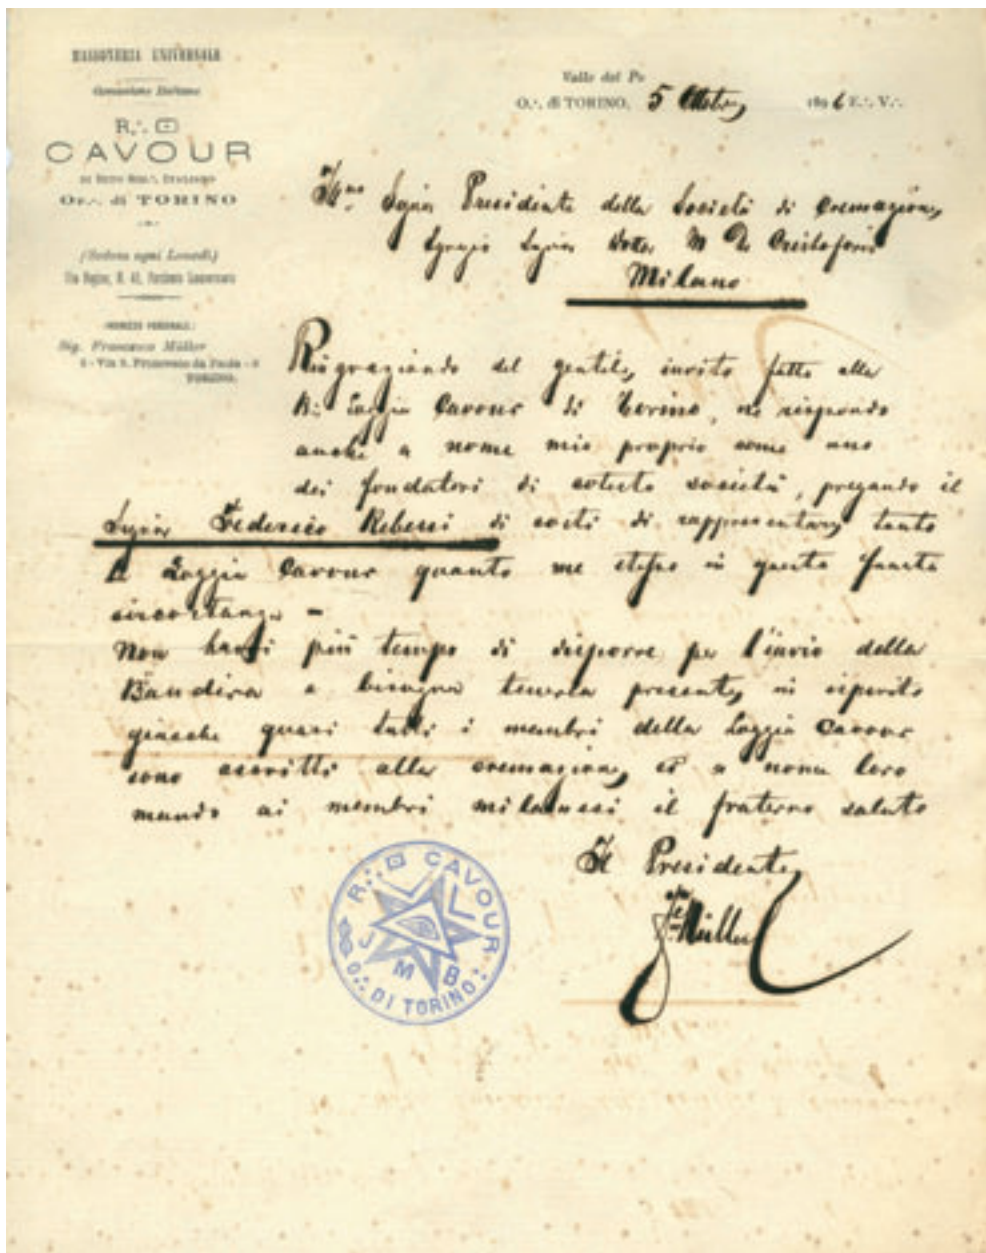 MASSONERIA UNIVERSALE
Comunione Italiana
R∴
CAVOUR
DI RITO SIMB∴ ITALIANO
Or∴ di TORINO
(Seduta ogni Lunedì)
Sig. Francesco Müller
6 - Via S. Francesco da Paola - 6
TORINO.
Valle del Po
O∴ di TORINO, 5 Ottobre 1896 E∴ V∴
Ill.mo Signor Presidente della Società di Cremazione
Egregio Signor Dottor M De Cristoforis
Milano
Ringraziando del gentile invito fatto alla
R∴ Loggia Cavour di Torino, ne rispondo
anche a nome mio proprio come uno
dei fondatori di codesta società, pregando il
Signor Federico di costì di rappresentare tanto
la Loggia Cavour quanto me stesso in questa fausta
circostanza -
Non havvi più tempo di disporre per l'invio della
Bandiera e bisogna tenerla presente in ispirito
giacchè quasi tutti i membri della Loggia Cavour
sono ascritti alla cremazione, ed a nome loro
mando ai membri milanesi il fraterno saluto
Il Presidente
Müller
R∴ CAVOUR
L
J M B
O∴ DI TORINO